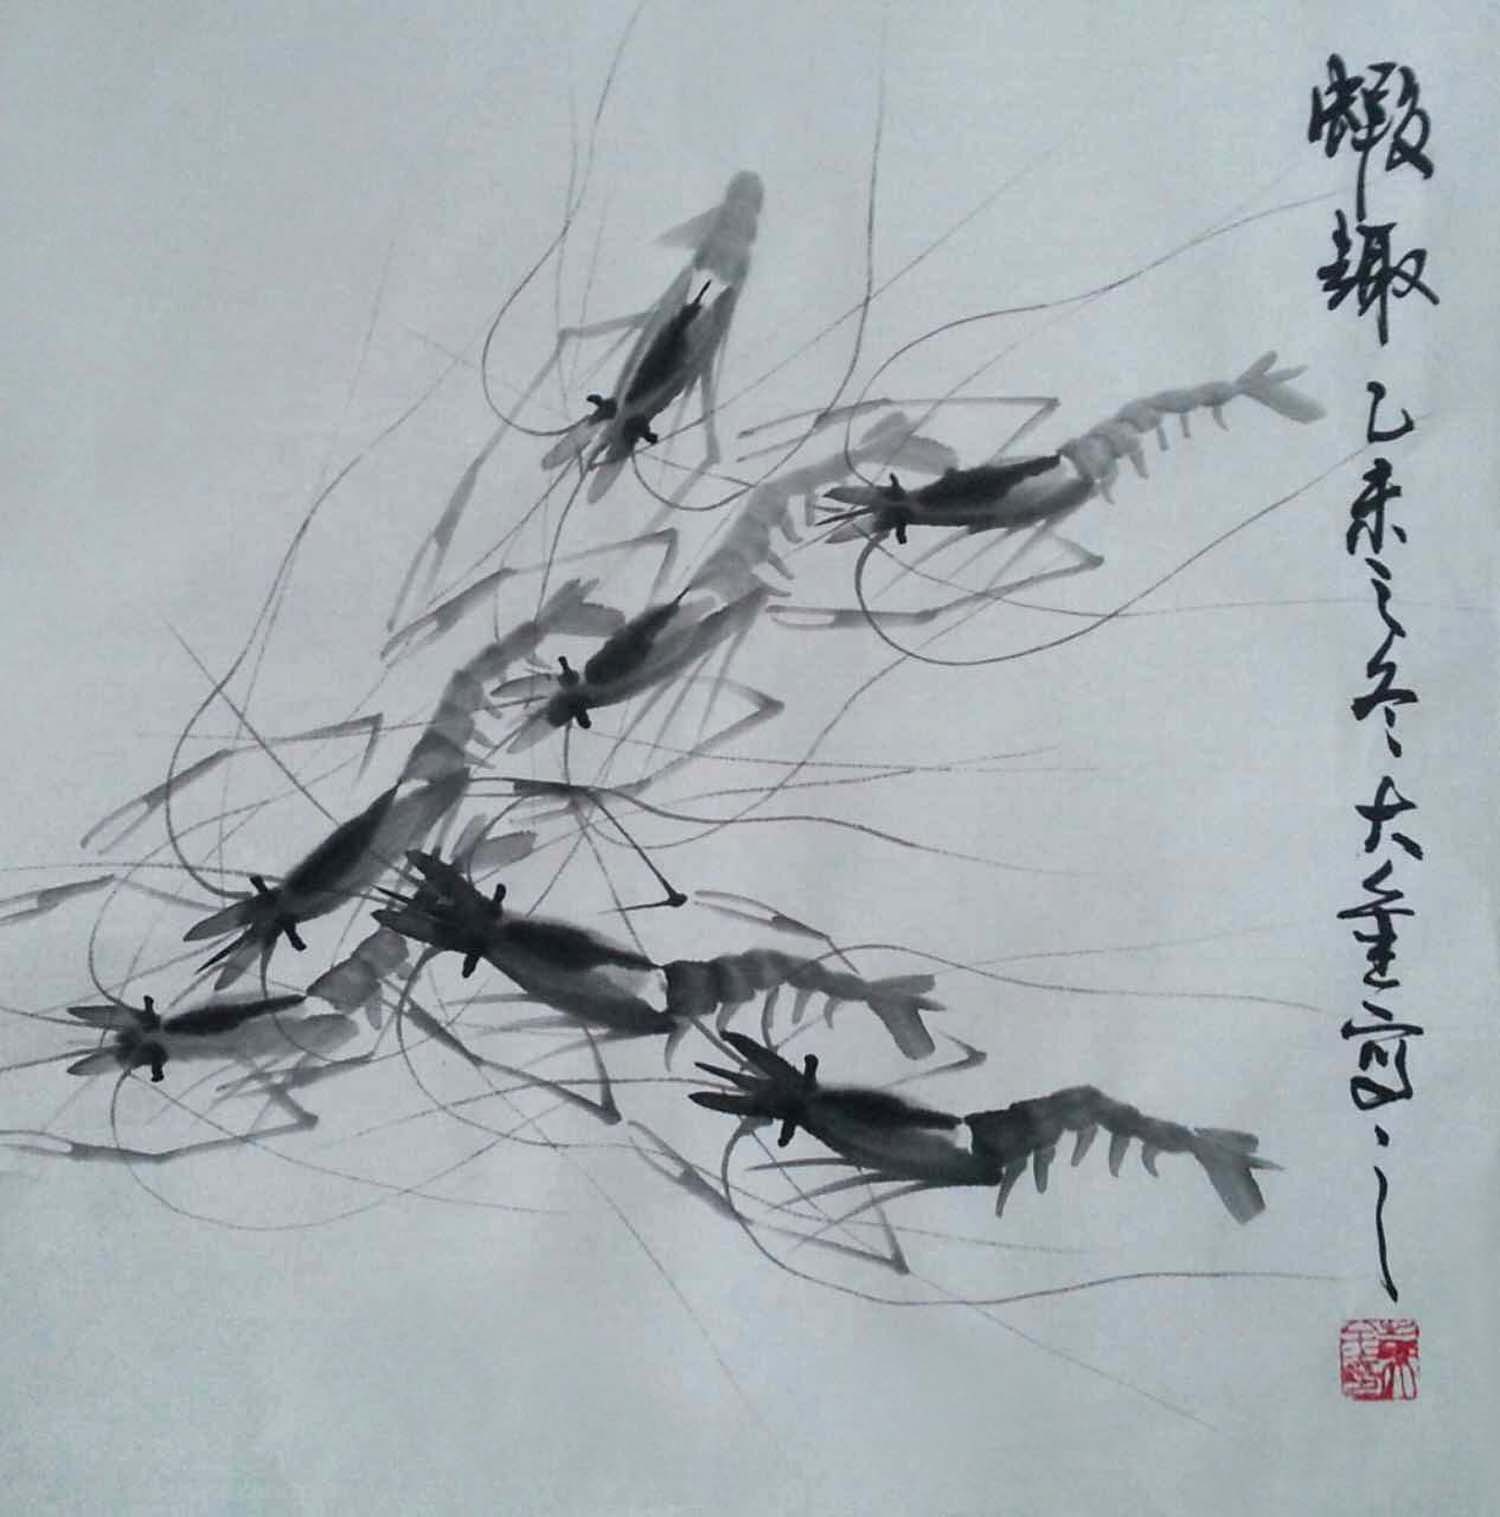 蝦趣 乙未之冬 大金寫